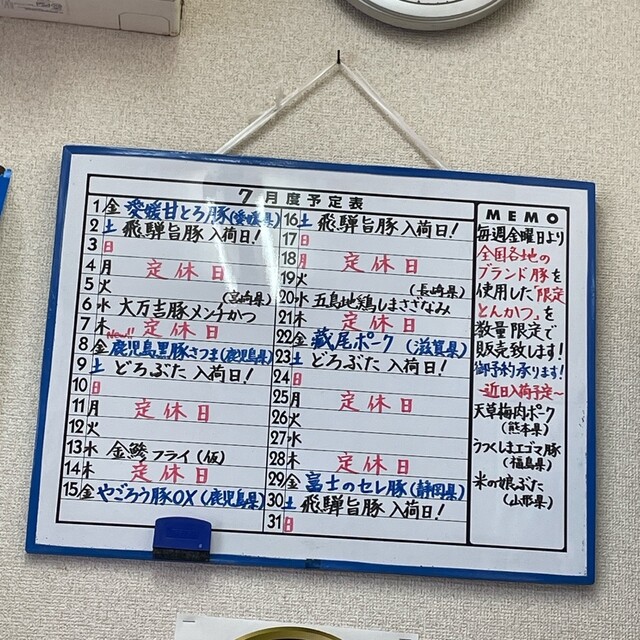 7月度予定表
1 金 愛媛甘とろ豚(愛媛県)
2 土 飛騨旨豚入荷日!
3 日
4 月 定休日
5 火
(宮崎県)
6 水 大万吉豚メンチかつ
7 木 定休日
New!!
8 金 鹿児島黒豚さつま(鹿児島県)
9 土 どろぶた入荷日!
10 日
11 月 定休日
12 火
13 水 金鯵フライ(仮)
14 木 定休日
15 金 やごろう豚OX(鹿児島県)
16 土 飛騨旨豚入荷日!
17 日
18 月 定休日
19 火
(長崎県)
20 水 五島地鶏しまさざなみ
21 木 定休日
22 金 蔵尾ポーク(滋賀県)
23 土 どろぶた入荷日!
24 日
25 月 定休日
26 火
27 水
28 木 定休日
29 金 富士のセレ豚(静岡県)
30 土 飛騨旨豚入荷日!
31 日
MEMO
毎週金曜日より
全国各地の
ブランド豚を
使用した「限定
とんかつ」を
数量限定で
販売致します!
御予約承ります!
~近日入荷予定~
天草梅肉ポーク
(熊本県)
うつくしまエゴマ豚
(福島県)
米の娘ぶた
(山形県)